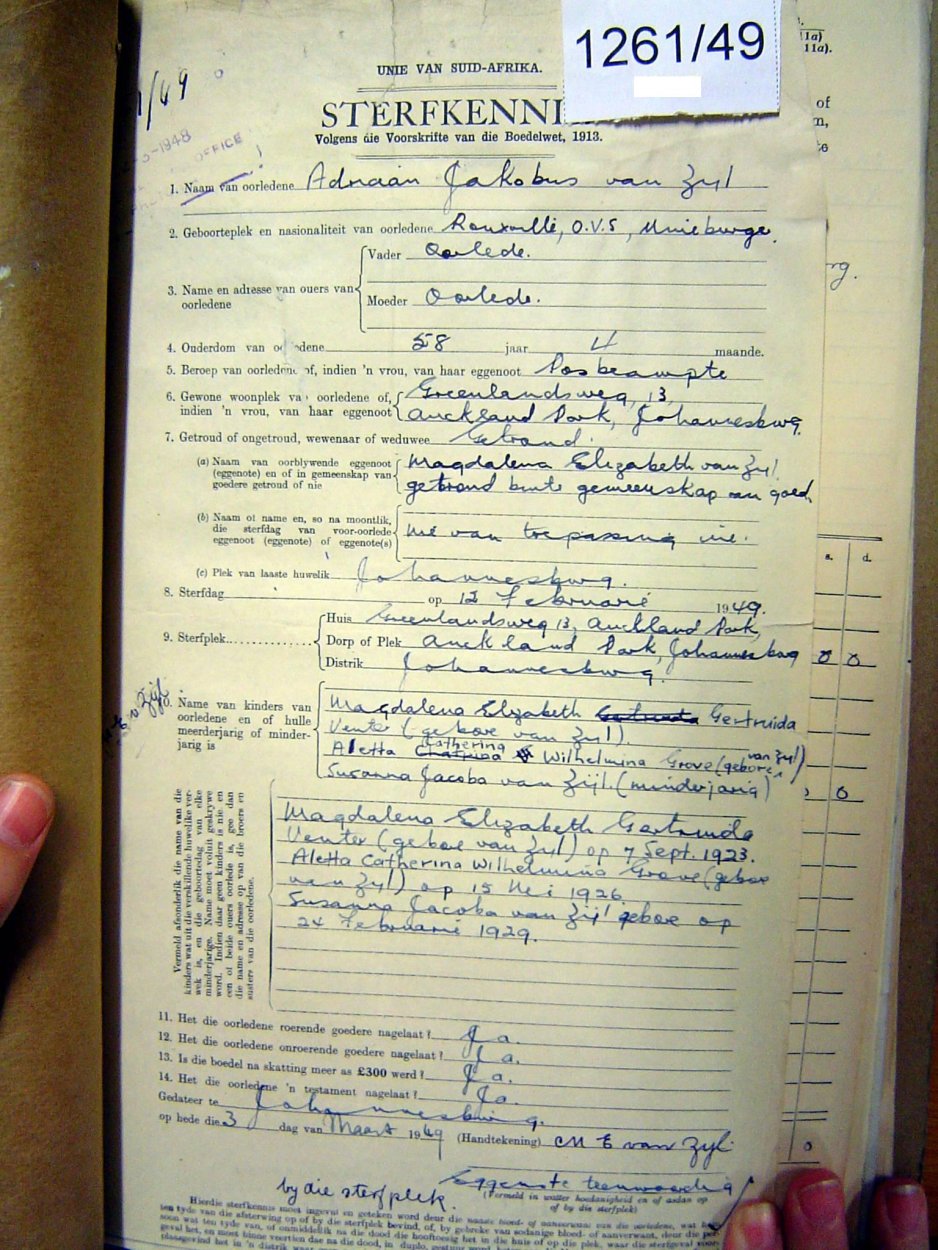 1261/49
/49
UNIE VAN SUID-AFRIKA.
STERFKENNI
Volgens die Voorskrifte van die Boedelwet, 1913.
-1948
OFFICE
1. Naam van oorledene Adriaan Jakobus van Zyl
2. Geboorteplek en nasionaliteit van oorledene Rouxville, O.V.S, Unieburger.
3. Name en adresse van ouers van oorledene
Vader Oorlede.
Moeder Oorlede.
4. Ouderdom van oorledene 58 jaar 4 maande.
5. Beroep van oorledene of, indien 'n vrou, van haar eggenoot Posbeampte
6. Gewone woonplek van oorledene of, Greenlandsweg, 13,
indien 'n vrou, van haar eggenoot Auckland Park, Johannesburg.
7. Getroud of ongetroud, wewenaar of weduwee Getroud.
(a) Naam van oorblywende eggenoot Magdalena Elizabeth van Zyl
(eggenote) en of in gemeenskap van
goedere getroud of nie getroud buite gemeenskap van goed.
(b) Naam of name en, so na moontlik,
die sterfdag van voor-oorlede nie van toepassing nie.
eggenoot (eggenote) of eggenote(s)
(c) Plek van laaste huwelik Johannesburg.
8. Sterfdag op 12 Februarie 1949.
9. Sterfplek
Huis Greenlandsweg 13, Auckland Park,
Dorp of Plek Auckland Park, Johannesburg
Distrik Johannesburg.
10. Name van kinders van
oorledene en of hulle
meerderjarig of minder-
jarig is
Magdalena Elizabeth Gertruida Gertruida
Venter (gebore van Zyl).
Aletta Catherina Wilhelmina Grove (gebore van Zyl)
Susanna Jacoba van Zijl. (minderjarig)
Vermeld afsonderlik die name van die
kinders wat uit die verskillende huwelike ver-
wek is, en die geboortedag van elke
minderjarige. Name moet voluit geskrywe
word. Indien daar geen kinders is nie en
een of beide ouers oorlede is, gee dan
die name en adresse op van die broers en
susters van die oorledene.
Magdalena Elizabeth Gertruida
Venter (gebore van Zyl) op 7 Sept. 1923.
Aletta Catherina Wilhelmina Grove (gebore
van Zyl) op 15 Mei 1926.
Susanna Jacoba van Zijl gebore op
24 Februarie 1929.
11. Het die oorledene roerende goedere nagelaat? Ja.
12. Het die oorledene onroerende goedere nagelaat? Ja.
13. Is die boedel na skatting meer as £300 werd? Ja.
14. Het die oorledene 'n testament nagelaat? Ja.
Gedateer te Johannesburg.
op hede die 3 dag van Maart 1949 (Handtekening) M E van Zyl
Eggenote teenwoordig
by die sterfplek
(Vermeld in watter hoedanigheid en of aldan op
of by die sterfplek)